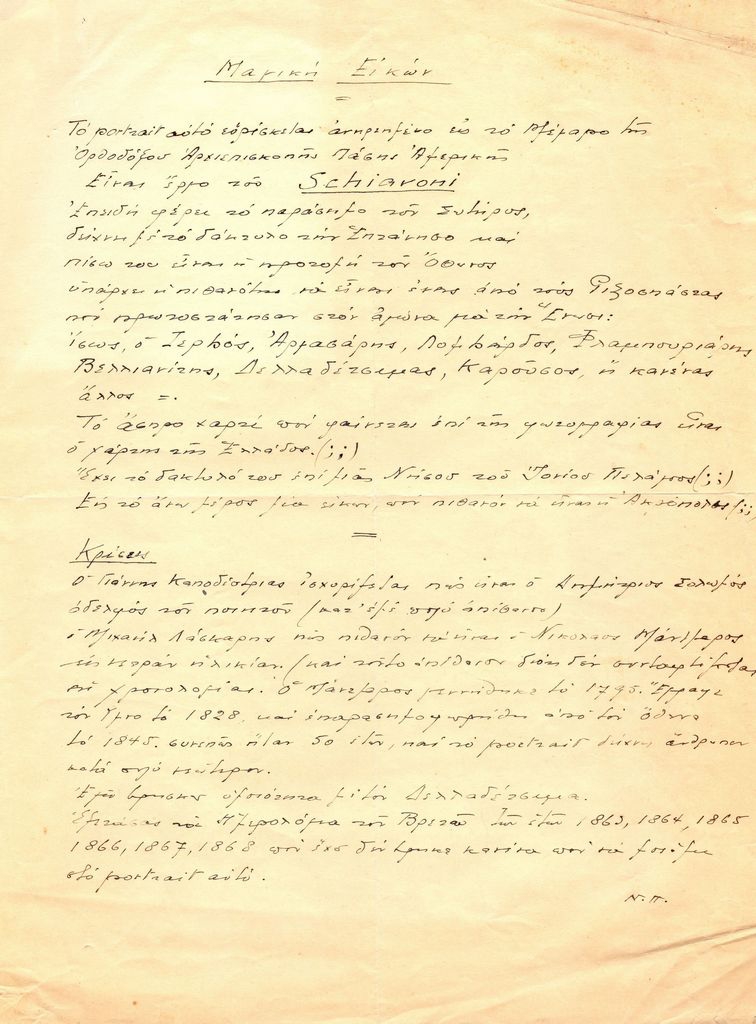 Μαγική Εἰκών
Τό portrait αὐτό εὑρίσκεται ἀνηρτημένο εἰς τό Μέγαρο τῆς
Ὀρθοδόξου Ἀρχιεπισκοπῆς Πάσης Ἀμερικῆς
Εἶναι ἔργο τοῦ Schiavoni
Ἐπειδή φέρει τό παράσημο τοῦ Σωτῆρος,
δείχνει μέ τό δάκτυλο τήν Ἑπτάνησο καί
πίσω του εἶναι ἡ προτομή τοῦ Ὄθωνος
ὑπάρχει ἡ πιθανότης νά εἶναι ἕνας ἀπό τούς Ριζοσπάστας
πού πρωτοστάτησαν στόν ἀγώνα γιά τήν Ἕνωσι:
ἴσως, ὁ Ζερβός, Ἀρμασάρης, Λομβάρδος, Φλαμπουριάρης
Βελλιανίτης, Δελλαδέτσιμας, Καροῦσος, ἤ κανένας
ἄλλος =.
Τό ἄσπρο χαρτί πού φαίνεται ἐπί τῆς φωτογραφίας εἶναι
ὁ χάρτης τῆς Ἑλλάδος.(;;)
Ἔχει τό δακτυλό του ἐπί μιᾶς Νήσου τοῦ Ἰονίου Πελάγους(;;)
Εἰς τό ἄνω μέρος μία εἰκών, πού πιθανόν νά εἶναι ἡ Ἀκρόπολις(;;
Κρίσεις
Ὁ Γιάννης Καποδίστριας ἰσχυρίζεται πώς εἶναι ὁ Δημήτριος Σολωμός
ἀδελφός τοῦ ποιητοῦ (κατ' ἐμέ πολύ ἀπίθανο)
ὁ Μιχαήλ Λάσκαρης πώς πιθανόν νά εἶναι ὁ Νικόλαος Μάντζαρος
εἰς νεαράν ἡλικίαν. (καί τοῦτο ἀπίθανον διότι δέν συνταυτίζεται
ἡ χρονολογία. Ὁ Μάντζαρος γεννήθηκε τό 1795. Ἔγραψε
τόν Ὕμνο τό 1828, καί ἐπαρασημοφορήθη ἀπό τόν Ὄθωνα
τό 1845. συνεπῶς ἦταν 50 ἐτῶν, καί τό portrait δείχνει ἄνθρωπον
κατά πολύ νεώτερον.
Ἐγώ βρίσκω ὁμοιότητα μέ τόν Δελλαδέτσιμα.
Ἐξετάσας τά Ἡμερολόγια τοῦ Βρεττοῦ τῶν ἐτῶν 1863, 1864, 1865
1866, 1867, 1868 πού ἔχω δέν βρῆκα κανένα πού νά μοιάζει
στό portrait αὐτό.
Ν.Π.